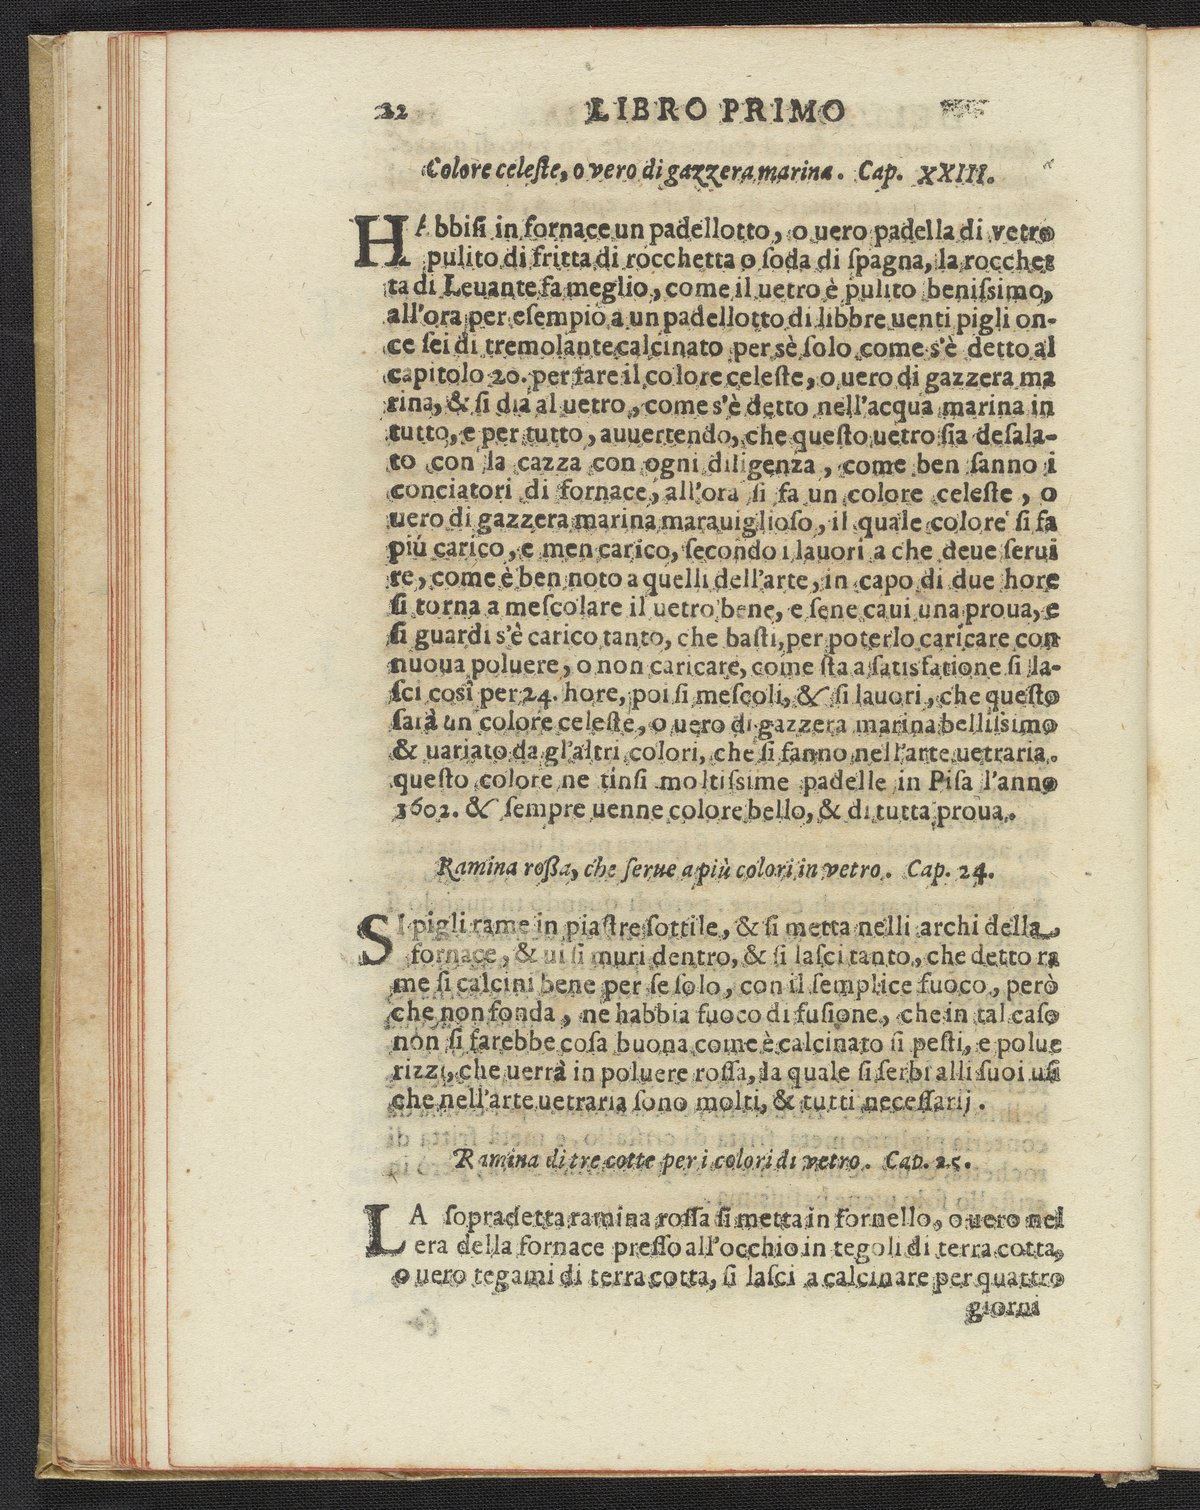 22 LIBRO PRIMO
Colore celeſte, o vero di gazzera marina. Cap. XXIII.
HAbbiſi in fornace un padellotto, o uero padella di vetro
pulito di fritta di rocchetta o ſoda di ſpagna, la rocchet
ta di Leuante fa meglio, come il uetro è pulito beniſsimo,
all'ora per eſempio a un padellotto di libbre uenti pigli on-
ce ſei di tremolante calcinato per sè ſolo come s'è detto al
capitolo 20. per fare il colore celeſte, o uero di gazzera ma
rina, & ſi dia al uetro, come s'è detto nell'acqua marina in
tutto, e per tutto, auuertendo, che queſto uetro ſia deſala-
to con la cazza con ogni diligenza, come ben ſanno i
conciatori di fornace, all'ora ſi fa un colore celeſte, o
uero di gazzera marina marauiglioſo, il quale colore ſi fa
più carico, e men carico, ſecondo i lauori a che deue ſerui
re, come è ben noto a quelli dell'arte, in capo di due hore
ſi torna a meſcolare il uetro bene, e ſene caui una proua, e
ſi guardi s'è carico tanto, che baſti, per poterlo caricare con
nuoua poluere, o non caricare, come ſta a ſatisfatione ſi la-
ſci così per 24. hore, poi ſi meſcoli, & ſi lauori, che queſto
ſarà un colore celeſte, o uero di gazzera marina belliſsimo
& uariato da gl'altri colori, che ſi fanno nell'arte uetraria.
queſto colore ne tinſi moltiſsime padelle in Piſa l'anno
1602. & ſempre uenne colore bello, & di tutta proua.
Ramina roſſa, che ſerue a più colori in vetro. Cap. 24.
SI pigli rame in piaſtre ſottile, & ſi metta nelli archi della
fornace, & ui ſi muri dentro, & ſi laſci tanto, che detto ra
me ſi calcini bene per ſe ſolo, con il ſemplice fuoco, però
che non fonda, ne habbia fuoco di fuſione, che in tal caſo
non ſi farebbe coſa buona come è calcinato ſi peſti, e polue
rizzi, che uerrà in poluere roſſa, la quale ſi ſerbi alli ſuoi uſi
che nell'arte uetraria ſono molti, & tutti neceſſarij.
Ramina di tre cotte per i colori di vetro. Cap. 25.
LA ſopradetta ramina roſſa ſi metta in fornello, o uero nel
era della fornace preſſo all'occhio in tegoli di terra cotta,
o uero tegami di terra cotta, ſi laſci a calcinare per quattro
giorni